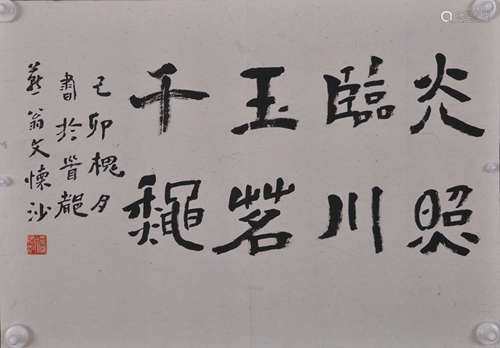 光照
臨川
玉茗
千穐
己卯槐月
書於首都
燕翁文懷沙